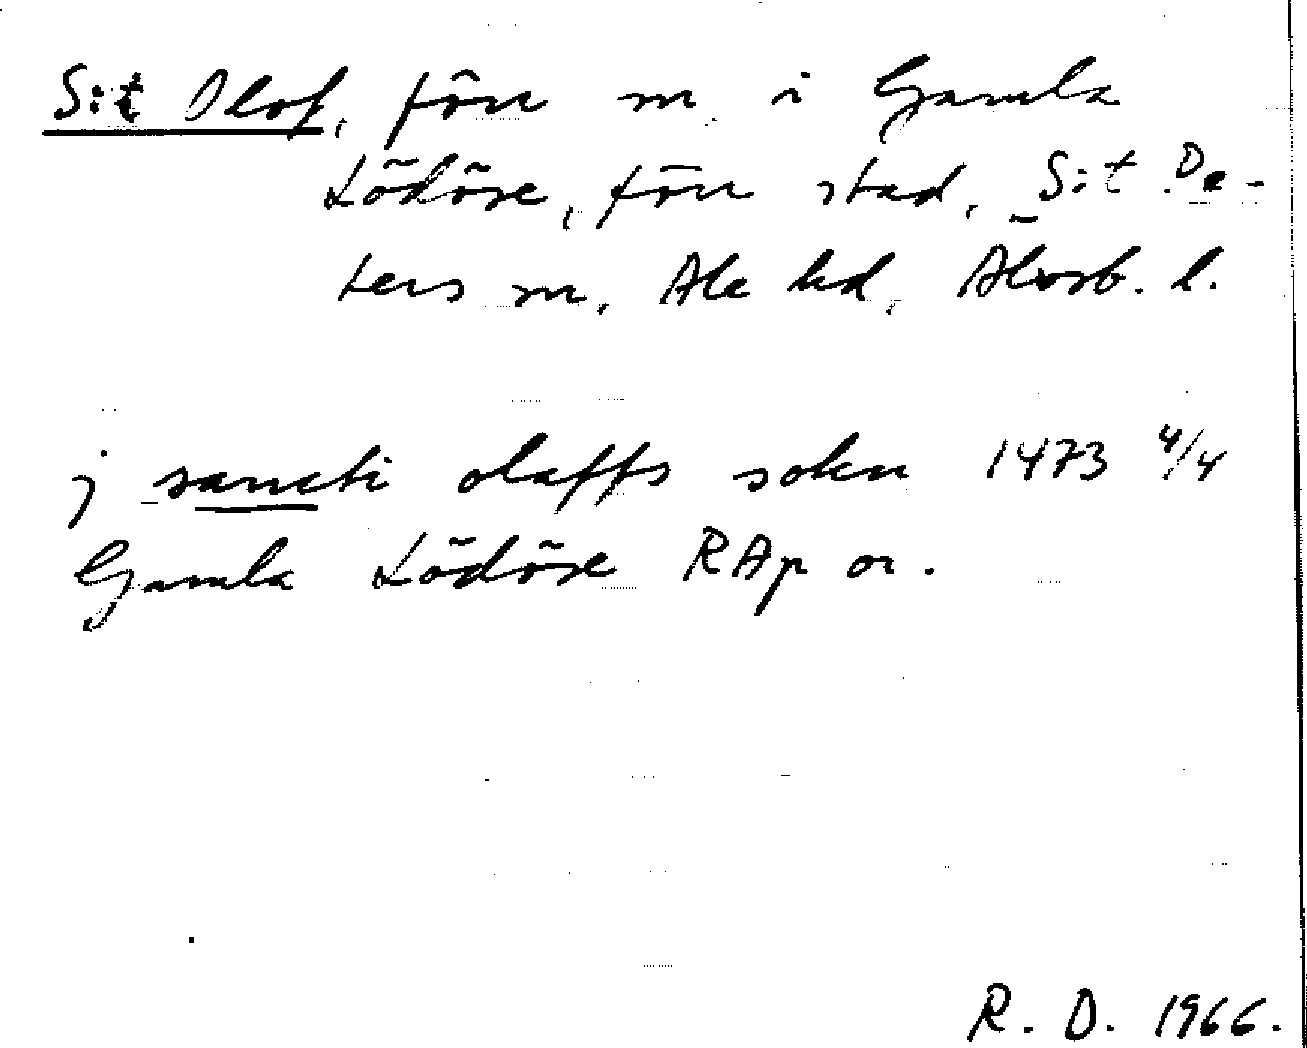 S:t Olof, förr sn i Gamla
Lödöse, förr stad, S:t Pe-
ters sn, Ale hd, Älvsb. l.
j sancti olaffs sokn 1473 4/4
Gamla Lödöse RAp or.
R. D. 1966.